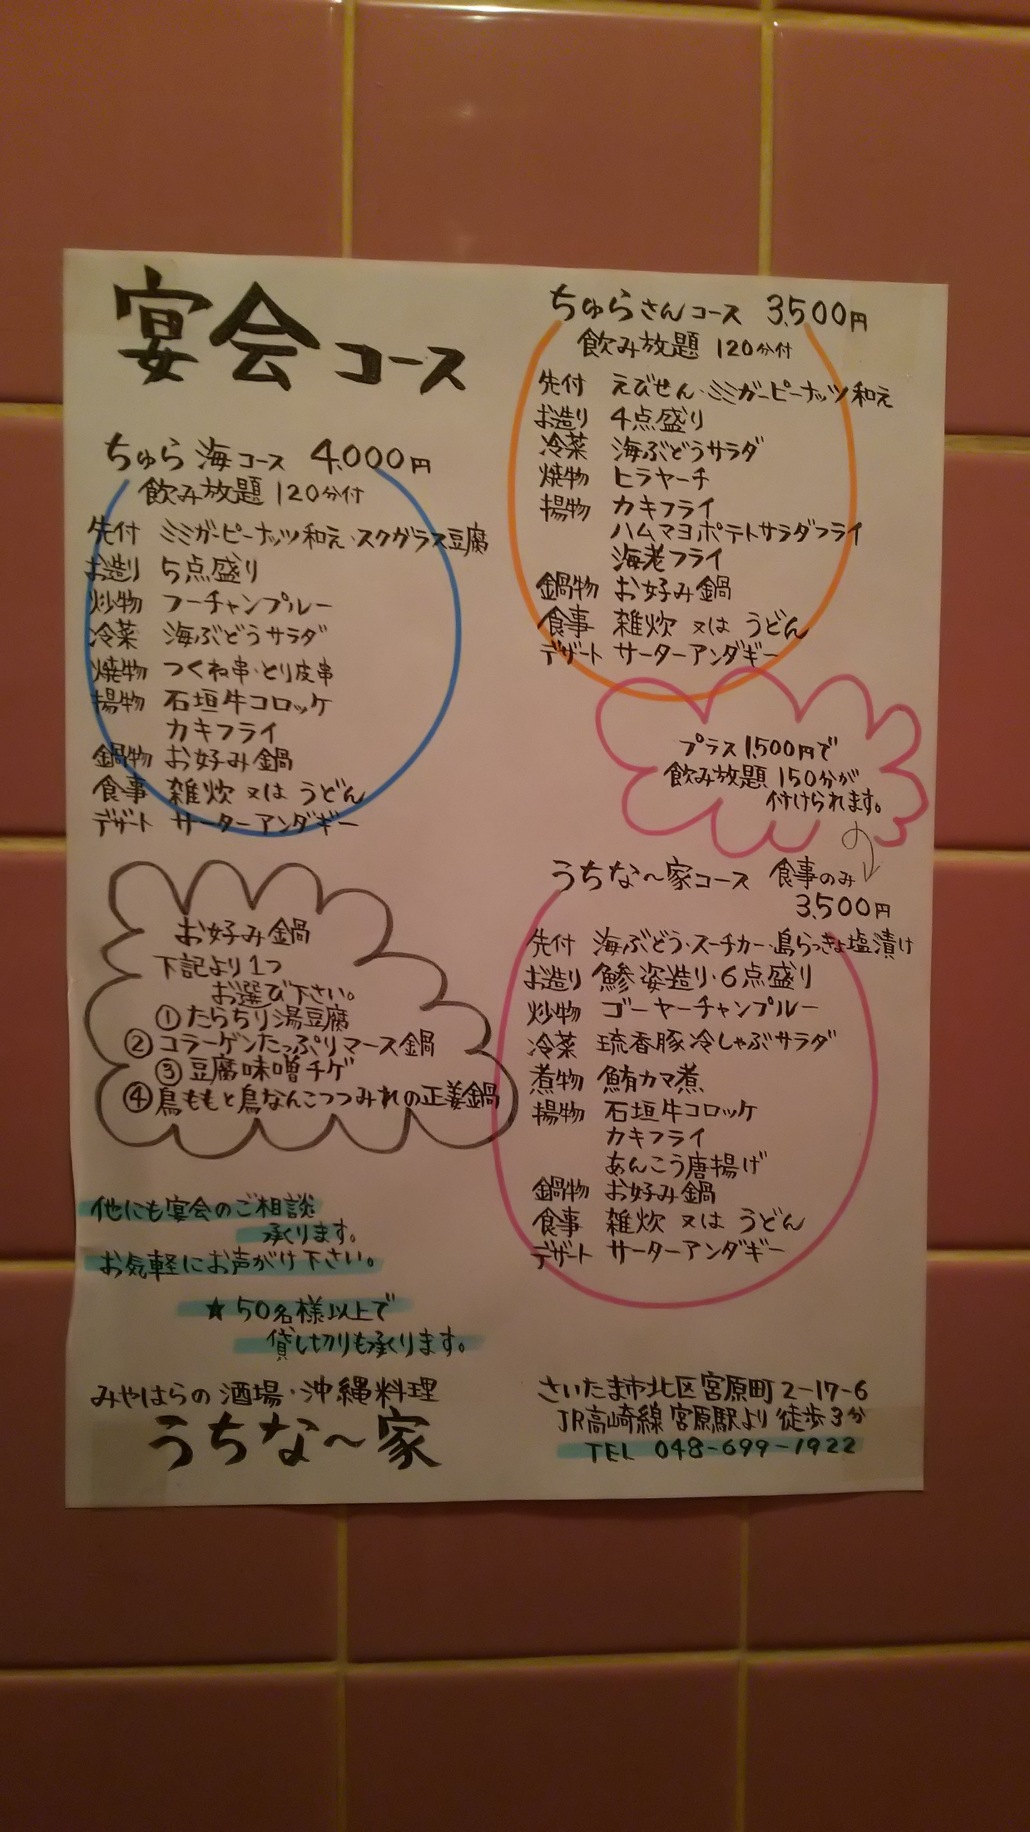 宴会コース
ちゅら海コース 4,000円
飲み放題 120分付
先付 ミミガーピーナッツ和え・スクガラス豆腐
お造り 5点盛り
炒物 フーチャンプルー
冷菜 海ぶどうサラダ
焼物 つくね串・とり皮串
揚物 石垣牛コロッケ
カキフライ
鍋物 お好み鍋
食事 雑炊 又は うどん
デザート サーターアンダギー
お好み鍋
下記より1つ
お選び下さい。
①たらちり湯豆腐
②コラーゲンたっぷりマース鍋
③豆腐味噌チゲ
④鳥ももと鳥なんこつつみれの正姜鍋
他にも宴会のご相談
承ります。
お気軽にお声がけ下さい。
★50名様以上で
貸し切りも承ります。
みやはらの酒場・沖縄料理
うちな〜家
ちゅらさんコース 3,500円
飲み放題 120分付
先付 えびせん・ミミガーピーナッツ和え
お造り 4点盛り
冷菜 海ぶどうサラダ
焼物 ヒラヤーチ
揚物 カキフライ
ハムマヨポテトサラダフライ
海老フライ
鍋物 お好み鍋
食事 雑炊 又は うどん
デザート サーターアンダギー
プラス1,500円で
飲み放題 150分が
付けられます。
うちな〜家コース 食事のみ
3,500円
先付 海ぶどう・スーチカー・島らっきょ塩漬け
お造り 鯵姿造り・6点盛り
炒物 ゴーヤーチャンプルー
冷菜 琉香豚冷しゃぶサラダ
煮物 鮪カマ煮
揚物 石垣牛コロッケ
カキフライ
あんこう唐揚げ
鍋物 お好み鍋
食事 雑炊 又は うどん
デザート サーターアンダギー
さいたま市北区宮原町2-17-6
JR高崎線 宮原駅より 徒歩3分
TEL 048-699-1922